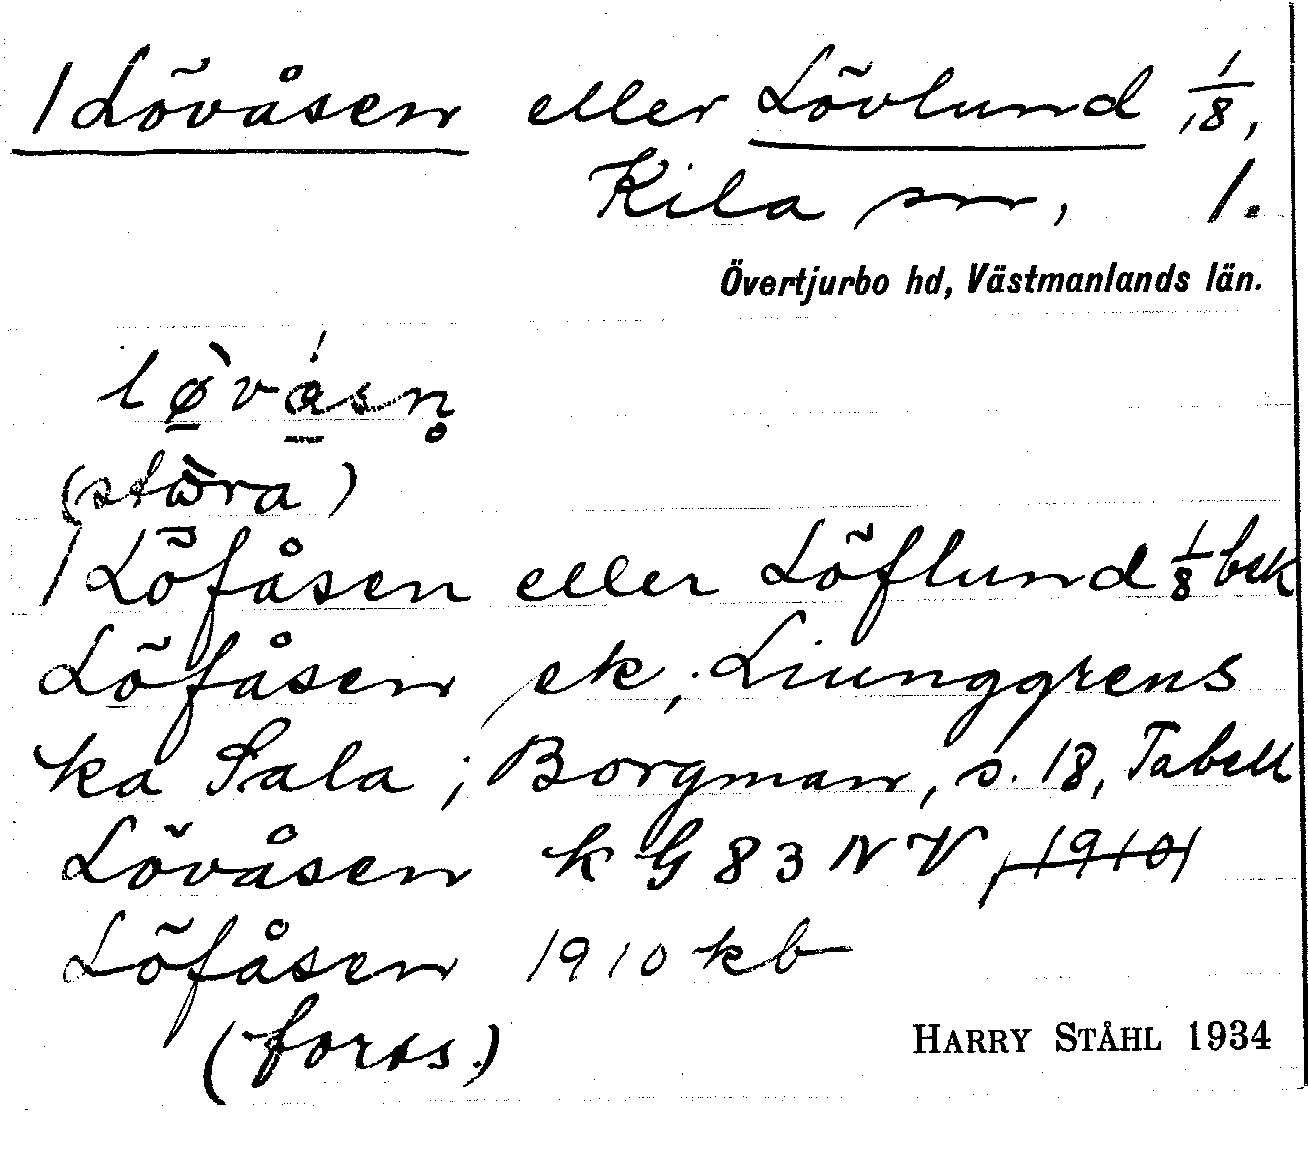 1 Lövåsen eller Lövlund 1/18,
Kila sn, 1.
Övertjurbo hd, Västmanlands län.
lø̀vásn̥
(stɷ̀ra)
1 Löfåsen eller Löflund 1/8 bek
Löfåsen ek; Liunggrens
ka Sala; Borgman, s. 18, Tabell
Lövåsen k G 83 NV, 1910
Löfåsen 1910 kb
(forts.)
HARRY STÅHL 1934